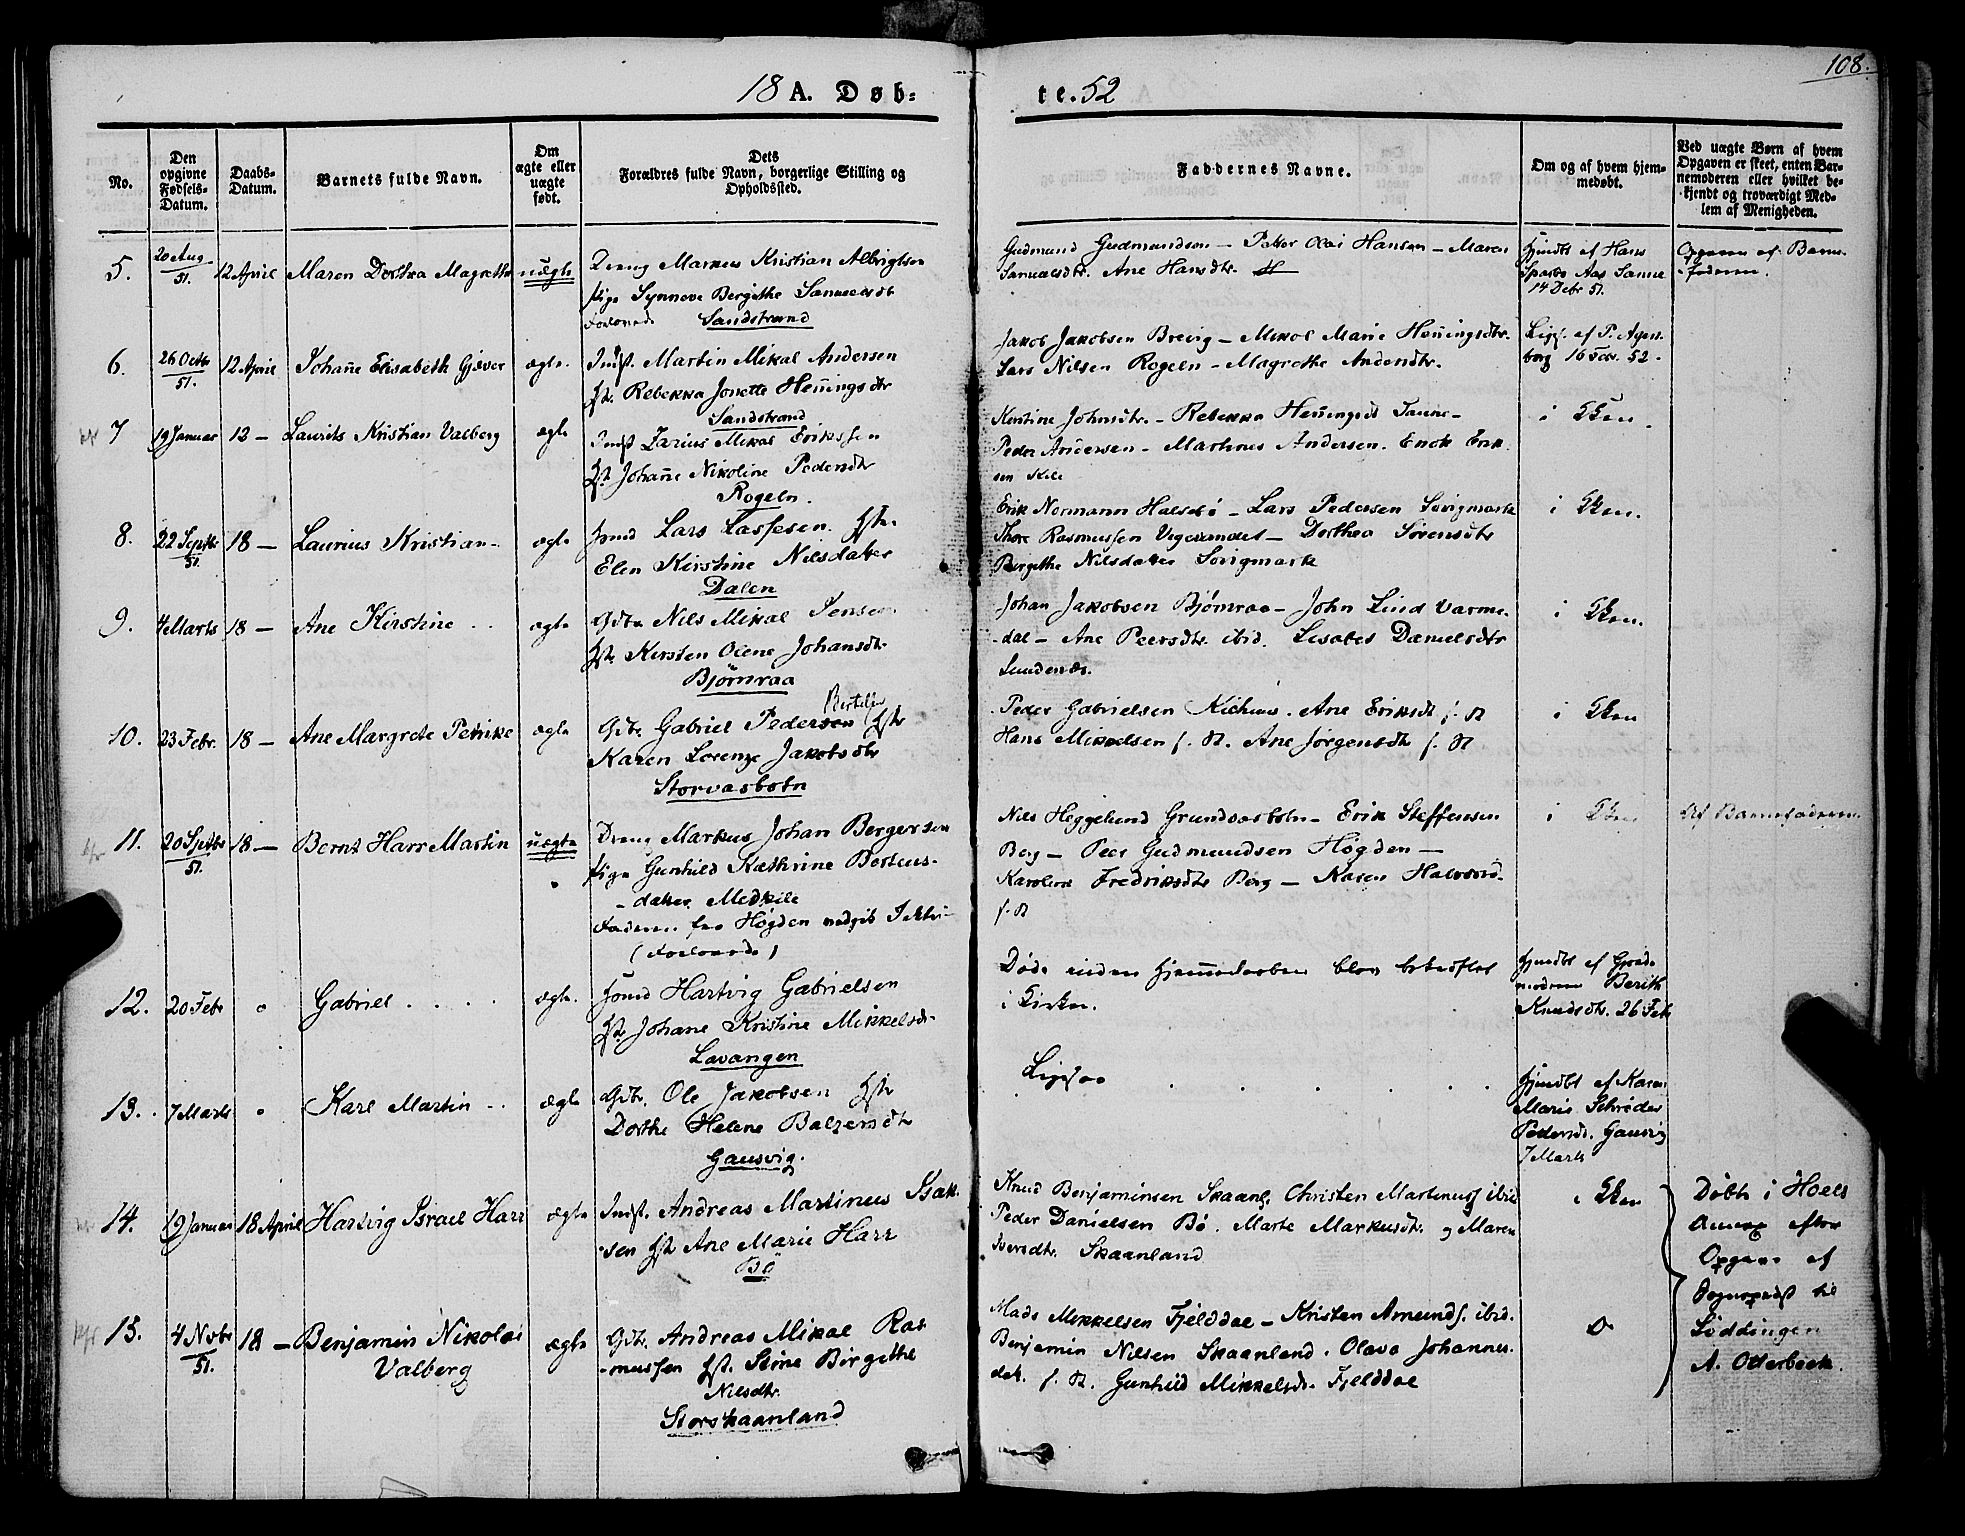 108.
18 A. Døb: te. 52
No.
Den opgivne Fødsels-Datum.
Daabs-Datum.
Barnets fulde Navn.
Om ægte eller uægte født.
Dets Forældres fulde Navn, borgerlige Stilling og Opholdssted.
Faddernes Navne.
Om og af hvem hjemmedøbt.
Ved uægte Børn af hvem Opgaven er skeet, enten Barnemoderen eller hvilket bekjendt og troværdigt Medlem af Menigheden.
5. 20 Aug 51. 12 April Maren Dorthea Magrethe uægte
Dreng Markus Kristian Albrigtsen
Pige Synneve Bergithe Samuelsdt
Sandstrand
Gudmund Gudmundsen – Petter Olai Hansen – Maren
Samuelsdtr. Ane Hansdtr.
Hjmdbt af Hans
14 Debr 51.
Opgaven af Barne-
-faderen.
6. 26 Octbr 51. 12 April Johañe Elisabeth Gjæver ægte.
Indst. Martin Mikal Andersen
Hst. Rebekka Jonette Heñingsdtr
Sandstrand
Jakob Jakobsen Brevig – Mikol Marie Heñingsdtr.
Lars Nilsen Rogeln – Magrethe Andersdtr.
7 19 Januar 12 – Laurits Kristian Valberg ægte
Indst Zarius Mikal Erikssen
Hst Johañe Nikoline Pedersdtr
Rogeln.
Kirstine Johnsdtr. – Rebekka Heñingsdt Sanne –
Peder Andersen – Martines Andersen. Enok Erik
sen Kile
i Kken.
8. 22 Septbr 51. 18 – Laurius Kristian – ægte
Hmd Lars Lassesen. Hst.
Elen Kirstine Nilsdatter
Dalen
Erik Normann Halsebø – Lars Pedersen Sørigmark
Thore Rasmussen Vigesandet – Dorthea Sørensdtr
Bergithe Nilsdatter Sørigmark
i Kken.
9. 4 Marts 18 – Ane Kirstine ægte
Gdbr Nils Mikal Jensen
Hst. Kirsten Olene Johansdtr.
Bjømraa
Johan Jakobsen Bjømraa – John Lind Varme-
-dal – Ane Peersdtr. ibid. Lisabet Danielsdtr
i Kken.
10. 23 Febr. 18 – Ane Margrete Petrike ægte
Gdbr. Gabriel Pedersen Bertelsen Hst
Karen Lorenze Jakobsdtr
Storvasbotn
Peder Gabrielsen. Ane Eriksdt f. St
Hans Mikkelsen f. St. Ane Jørgensdtr f. St
i Kken
11. 20 Sptbr 51. 18 – Bernt Harr Martin uægte
Dreng Markus Johan Bergersen
Pige Gunhild Kathrine Berteus-
-datter Medkile
Nils Heggelund Grundvasbotn – Erik Steffensen
Berg – Peer Gudmundsen Høgden –
Karoline Fredriksdtr Berg – Karen Halvorsd.
f. St
i Kken
Af Barnefaderen.
12. 20 Febr Gabriel ægte.
Hmd Hartvig Gabrielsen
Hst. Johane Kristine Mikkelsdr.
Lavangen
Døde inden Hjemmedaaben blev bekræftet
i Kirken.
Hjmdbt af Gjorde-
moderen Berith
Knudsdtr. 26 Feb
13. 7 Marts Karl Martin ægte
Gdbr. Ole Jakobsen Hst
Dorthe Helene Balzersdtr
Gausvig.
Ligesaa
Hjmdbt af Karen
Marie Schrøder
Pedersdt. Gausvig
7 Marts
14. 19 Januar 18 April Hartvig Israel Harr ægte
Indst. Andreas Martineus Isak
-sen Hst Ane Marie Harr
Bø
Knud Benjaminsen Skaanl. Christen Martinuss ibid
Peder Danielsen Bø. Marte Markusdtr. og Maren
Skaanland
i Kken
Døbte i Hoels
Annex efter
Opgave af
Sognepræst til
Løddingen
A. Otterbeck.
15. 4 Novbr 51. 18 – Benjamin Nikolai Valberg ægte
Gdbr. Andreas Mikal Ras
-mussen Hst. Stine Birgethe
Nilsdtr.
Storskaanland
Mads Mikkelsen Fjelddal – Kristen Amunds. ibid.
Benjamin Nilsen Skaanland. Olava Johannes-
dat. f. St. Gunhild Mikkelsdr. Fjelddal